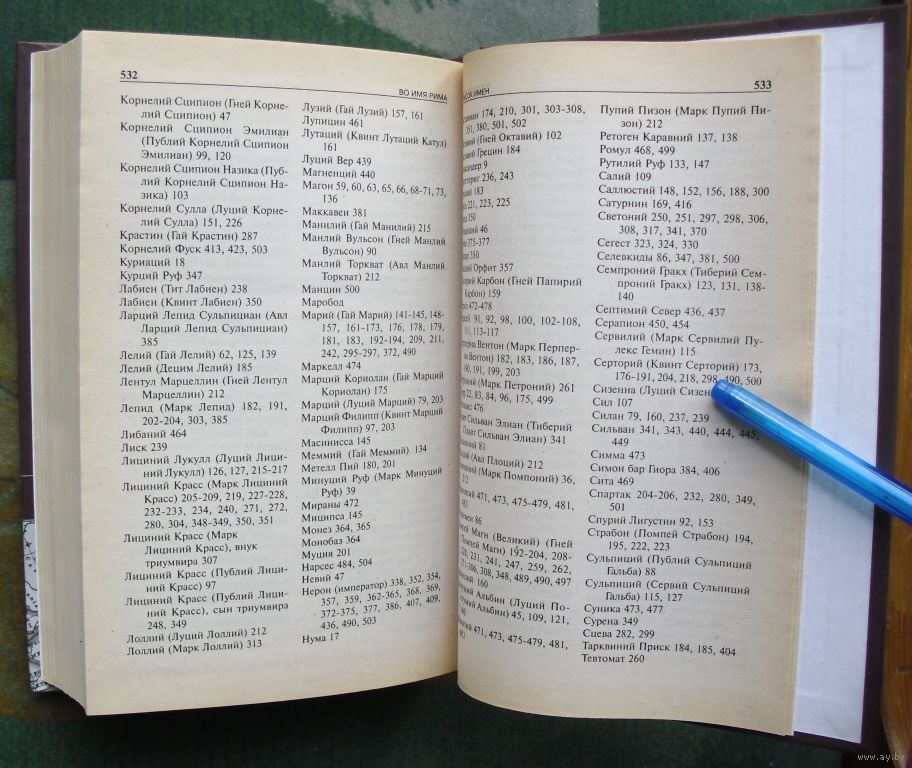 532
ВО ИМЯ РИМА
Корнелий Сципион (Гней Корне-
лий Сципион) 47
Корнелий Сципион Эмилиан
(Публий Корнелий Сципион
Эмилиан) 99, 120
Корнелий Сципион Назика (Пуб-
лий Корнелий Сципион На-
зика) 103
Корнелий Сулла (Луций Корне-
лий Сулла) 151, 226
Крастин (Гай Крастин) 287
Корнелий Фуск 413, 423, 503
Куриаций 18
Курций Руф 347
Лабиен (Тит Лабиен) 238
Лабиен (Квинт Лабиен) 350
Ларций Лепид Сульпициан (Авл
Ларций Лепид Сульпициан)
385
Лелий (Гай Лелий) 62, 125, 139
Лелий (Децим Лелий) 185
Лентул Марцеллин (Гней Лентул
Марцеллин) 212
Лепид (Марк Лепид) 182, 191,
202-204, 303, 385
Либаний 464
Лиск 239
Лициний Лукулл (Луций Лици-
ний Лукулл) 126, 127, 215-217
Лициний Красс (Марк Лициний
Красс) 205-209, 219, 227-228,
232-233, 234, 240, 271, 272,
280, 304, 348-349, 350, 351
Лициний Красс (Марк
Лициний Красс), внук
триумвира 307
Лициний Красс (Публий Лици-
ний Красс) 97
Лициний Красс (Публий Лици-
ний Красс), сын триумвира
248, 349
Лоллий (Луций Лоллий) 212
Лоллий (Марк Лоллий) 313
Лузий (Гай Лузий) 157, 161
Лупицин 461
Лутаций (Квинт Лутаций Катул)
161
Луций Вер 439
Магненций 440
Магон 59, 60, 63, 65, 66, 68-71, 73,
136
Маккавеи 381
Манилий (Гай Манилий) 215
Манлий Вульсон (Гней Манлий
Вульсон) 90
Манлий Торкват (Авл Манлий
Торкват) 212
Манцин 500
Маробод
Марий (Гай Марий) 141-145, 148-
157, 161-173, 176, 178, 179,
181, 183, 192-194, 209, 211,
242, 295-297, 372, 490
Маркелл 474
Марций Кориолан (Гай Марций
Кориолан) 175
Марций (Луций Марций) 79, 203
Марций Филипп (Квинт Марций
Филипп) 97, 203
Масинисса 145
Меммий (Гай Меммий) 134
Метелл Пий 180, 201
Минуций Руф (Марк Минуций
Руф) 39
Мираны 472
Миципса 145
Монез 364, 365
Монобаз 364
Муция 201
Нарсес 484, 504
Невий 47
Нерон (император) 338, 352, 354,
357, 359, 362-365, 368, 369,
372-375, 377, 386, 407, 409,
436, 490, 503
Нума 17
533
ИМЕН
174, 210, 301, 303-308,
351, 380, 501, 502
(Гней Октавий) 102
Грецин 184
9
236, 243
183
221, 223, 225
350
46
375-377
350
Орфит 357
Карбон (Гней Папирий
Карбон) 159
472-478
91, 92, 98, 100, 102-108,
113-117
Вентон (Марк Перпер-
на Вентон) 182, 183, 186, 187,
191, 199, 203
(Марк Петроний) 261
22, 83, 84, 96, 175, 499
476
Сильван Элиан (Тиберий
Плавт Сильван Элиан) 341
81
(Авл Плоций) 212
(Марк Помпоний) 36,
471, 473, 475-479, 481,
86
Магн (Великий) (Гней
Помпей Магн) 192-204, 208-
228, 231, 241, 247, 259, 262,
306, 308, 348, 489, 490, 497
160
Альбин (Луций По-
Альбин) 45, 109, 121,
471, 473, 475-479, 481,
Пупий Пизон (Марк Пупий Пи-
зон) 212
Ретоген Каравний 137, 138
Ромул 468, 499
Рутилий Руф 133, 147
Салий 109
Саллюстий 148, 152, 156, 188, 300
Сатурнин 169, 416
Светоний 250, 251, 297, 298, 306,
308, 317, 341, 370
Сегест 323, 324, 330
Селевкиды 86, 347, 381, 500
Семпроний Гракх (Тиберий Сем-
проний Гракх) 123, 131, 138-
140
Септимий Север 436, 437
Серапион 450, 454
Сервилий (Марк Сервилий Пу-
лекс Гемин) 115
Серторий (Квинт Серторий) 173,
176-191, 204, 218, 298, 490, 500
Сизенна (Луций
Сил 107
Силан 79, 160, 237, 239
Сильван 341, 343, 440, 444, 445,
449
Симма 473
Симон бар Гиора 384, 406
Сита 469
Спартак 204-206, 232, 280, 349,
501
Спурий Лигустин 92, 153
Страбон (Помпей Страбон) 194,
195, 222, 223
Сульпиций (Публий Сульпиций
Гальба) 88
Сульпиций (Сервий Сульпиций
Гальба) 115, 127
Суника 473, 477
Сурена 349
Сцева 282, 299
Тарквиний Приск 184, 185, 404
Тевтомат 260
www.ay.by